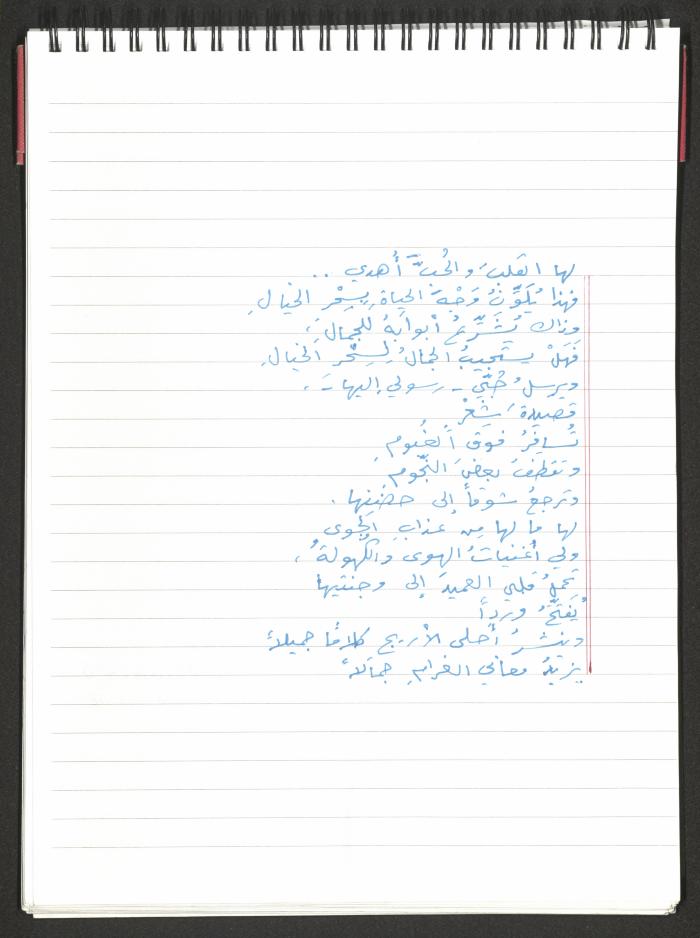 لها القلبَ والحُبَّ أُهدي ..
فهذا يُلَوِّنُ وَجْهَ الحياةِ بِسِحْرِ الخيالِ
وذاك يُشَرِّعُ أبوابَهُ للجمالِ،
فَهَلْ يستجيبُ الجمالُ لِسِحْرِ الخيالِ
ويرسلُ حُبّي - رسولي إليها -
قصيدةَ شِعْرٍ
تُسافِرُ فوق الغُيومِ
وتقطفَ بعضَ النّجومِ
وترجعُ شوقاً إلى حضنِها .
لها ما لها مِن عذابِ الجوى
ولي أغنياتُ الهوى والكُهولةُ،
تحملُ قلبي العميدَ إلى وجنتيها
يُفَتِّحُ ورداً
وينشرُ أحلى الأريج كلامًا جميلاً
يزيدُ معاني الغرامِ جمالاً